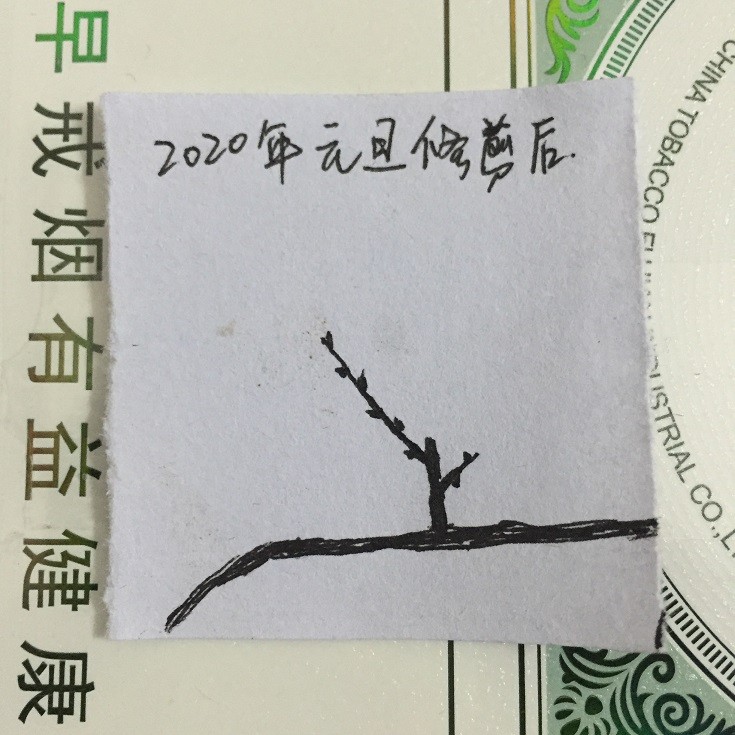 2020年元旦修剪后.
早戒烟有益健康
CHINA TOBACCO
INDUSTRIAL CO.,L